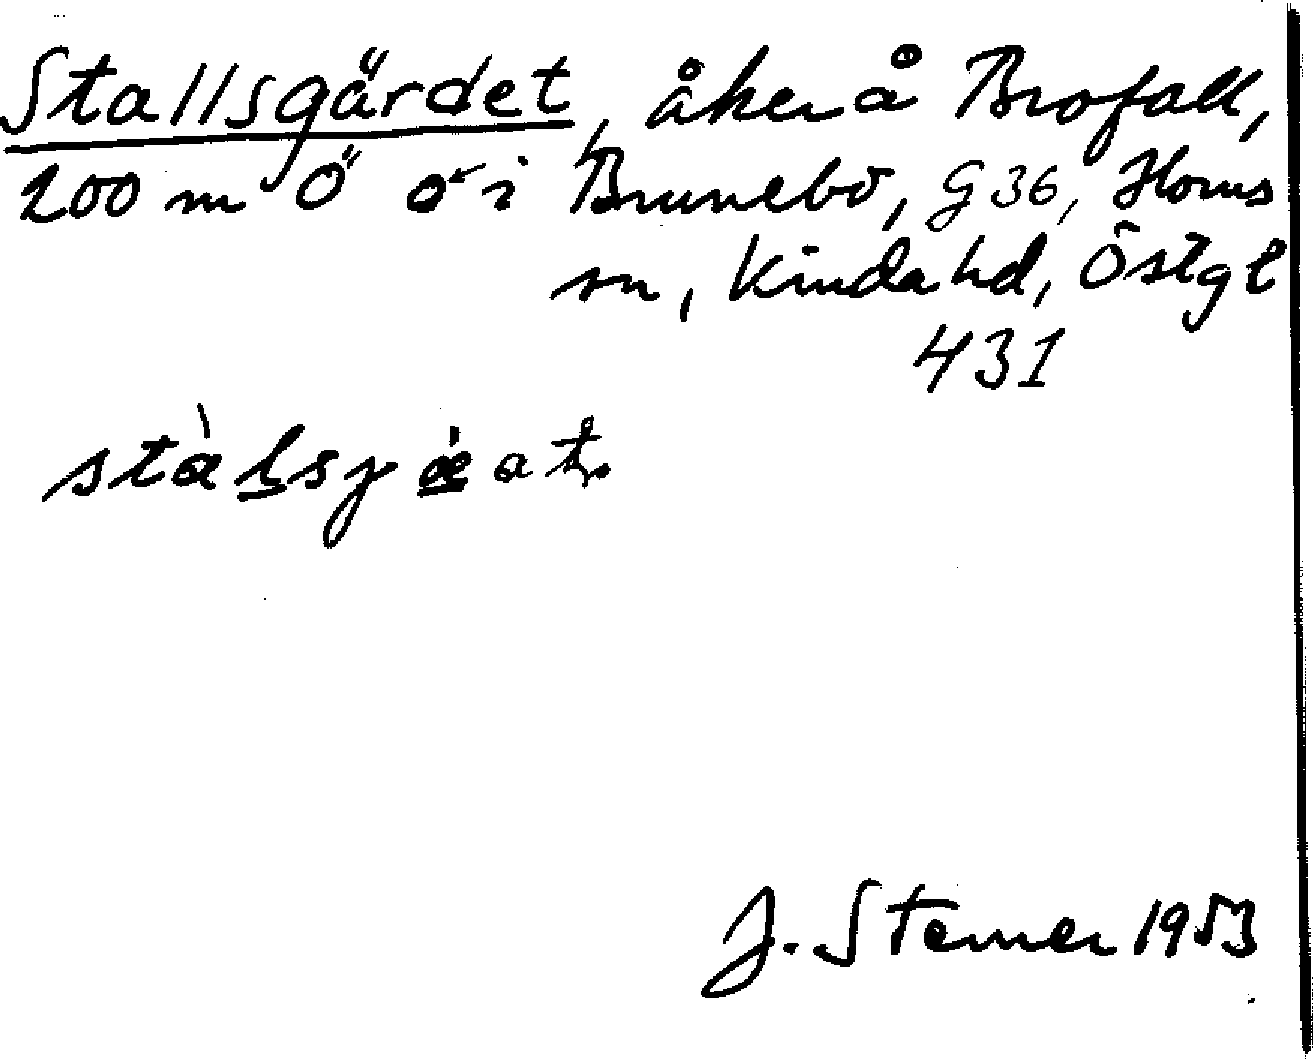 Stallsgärdet, åker å Brofall,
200 m Ö o i Brunebo, G 36, Horns
sn, Kinda hd, Östgl
431
J. Sterner 1953